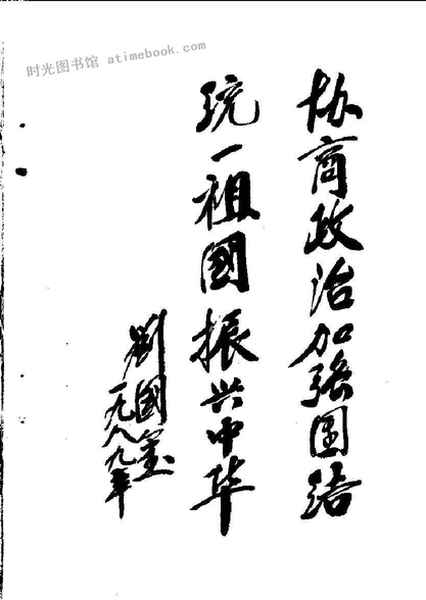 时光图书馆 atimebook.com
协商政治加强团结
统一祖國振兴中华
劉國宝
一九八九年